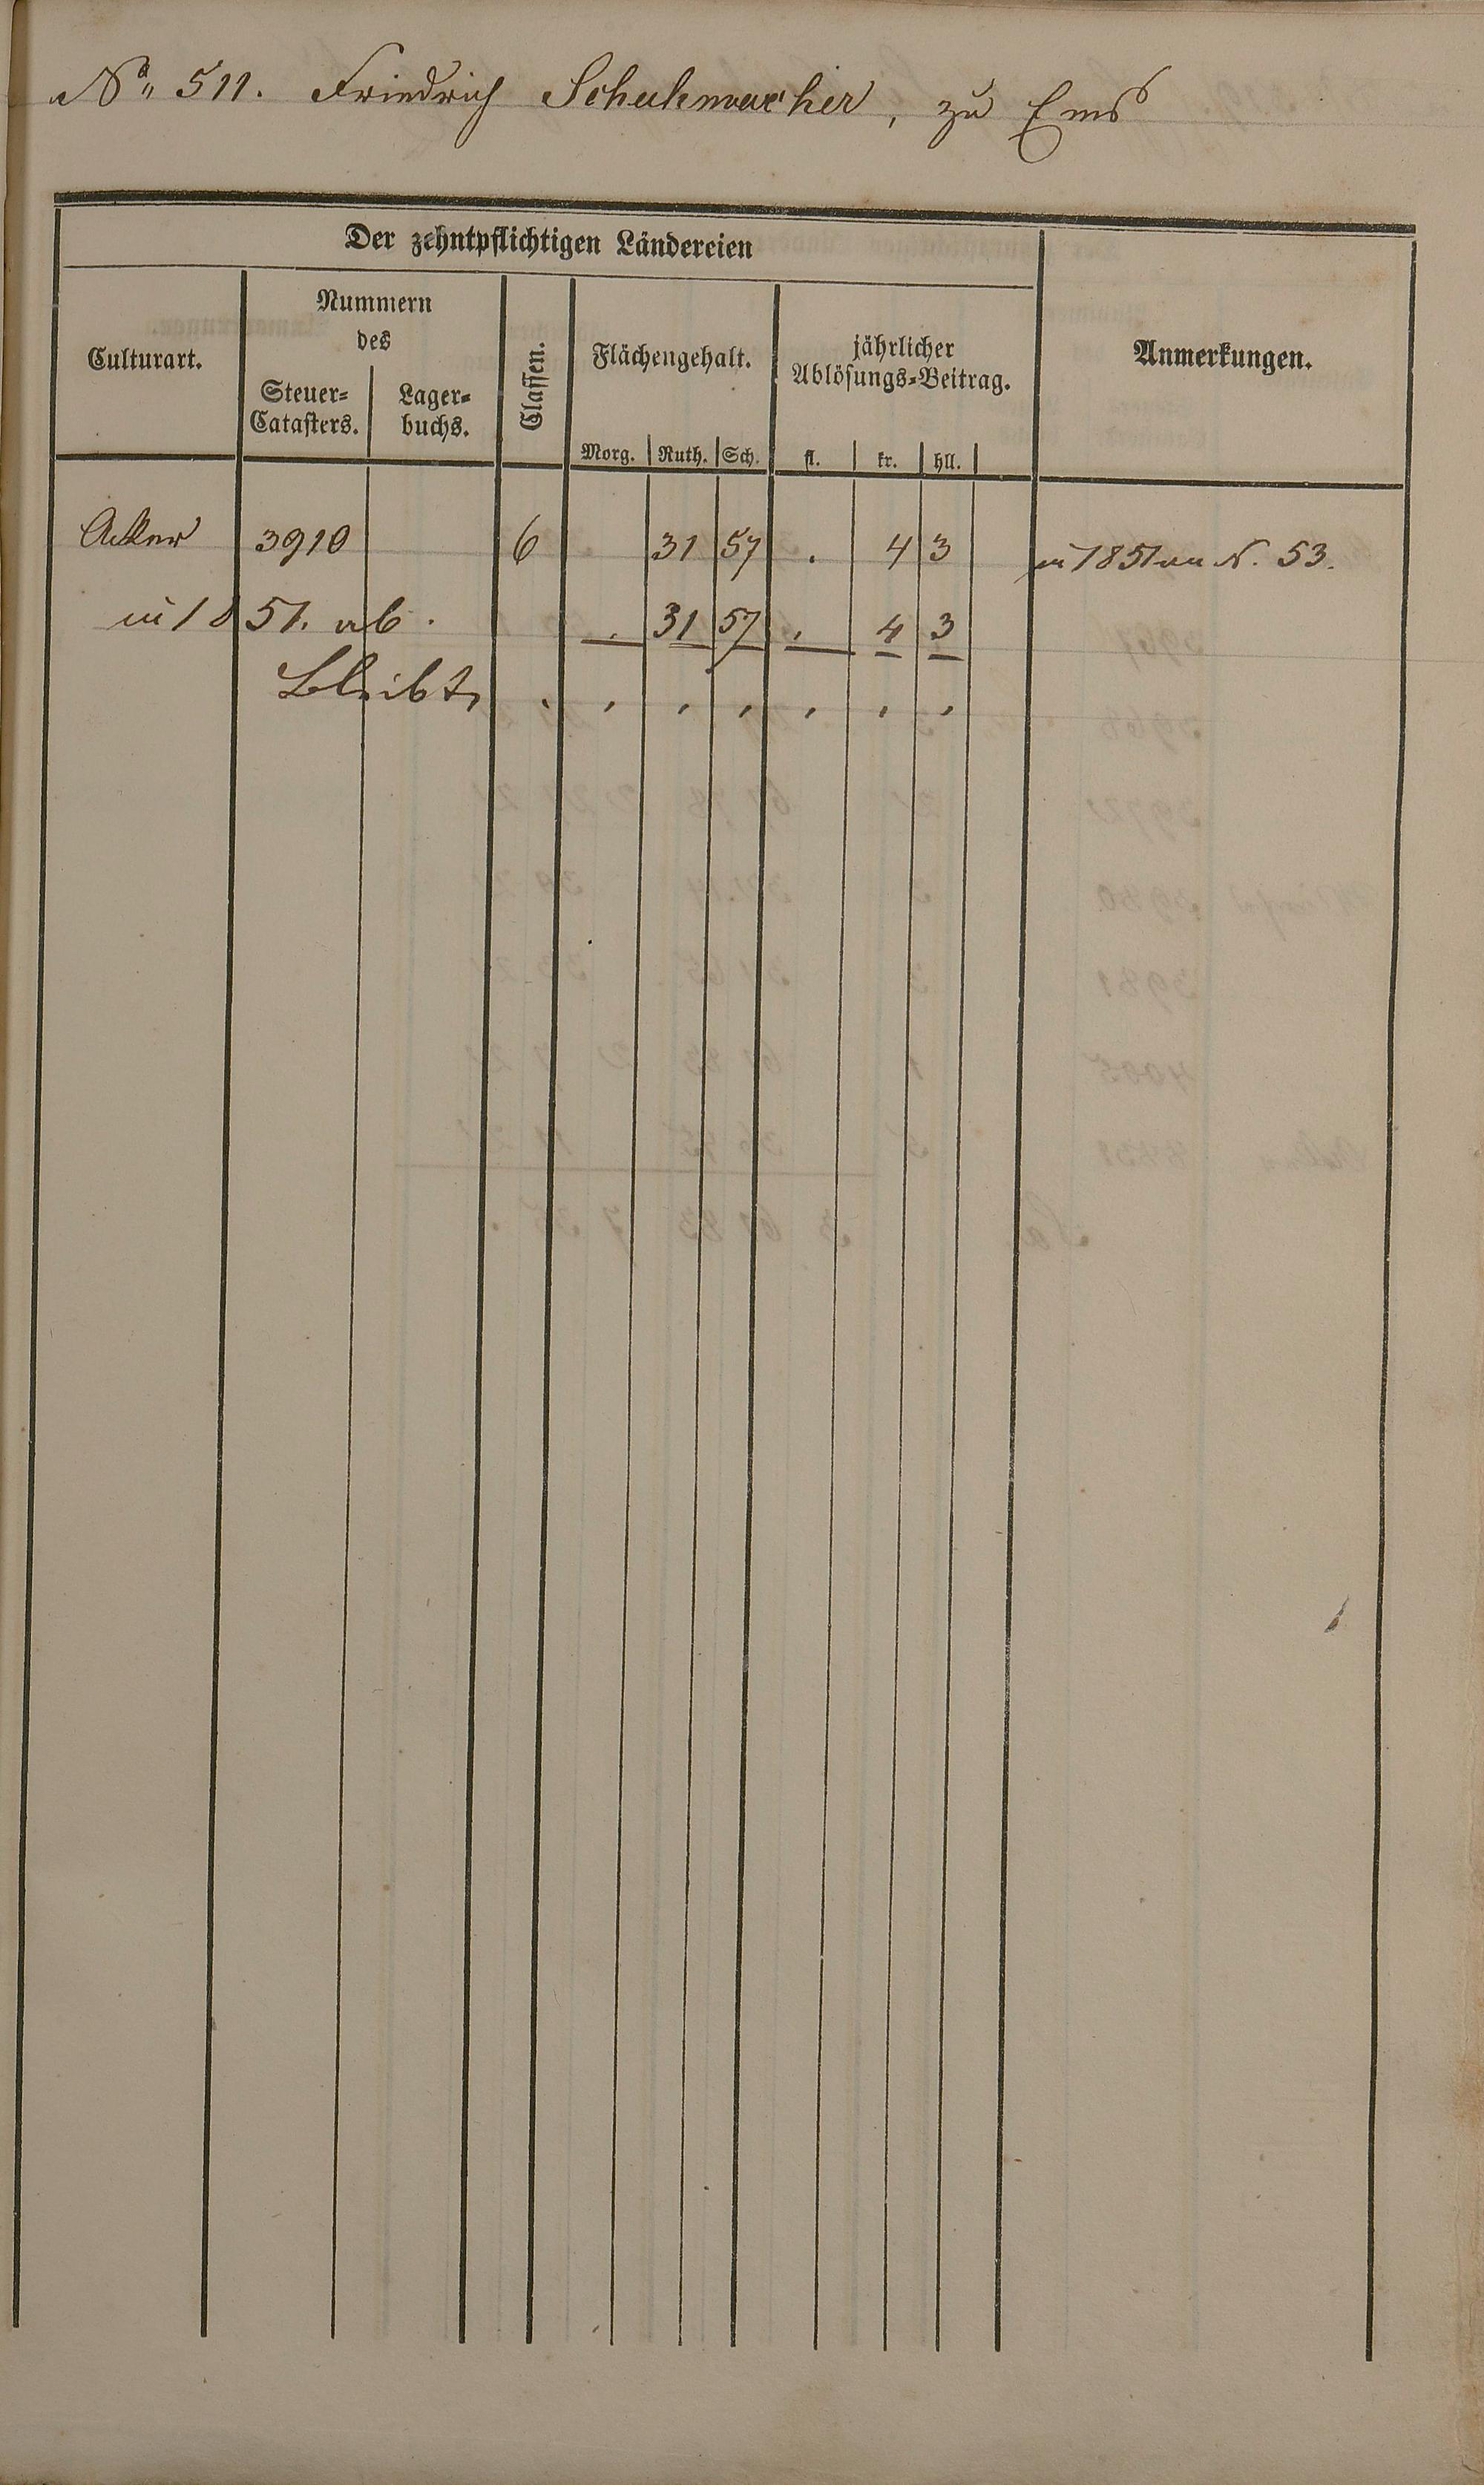 No 511. Friedrich Schuhmacher, zu Ems
Der zehntpflichtigen Ländereien
Culturart.
Nummern
des
Steuer=
Catasters.
Lager=
buchs.
Classen.
Flächengehalt.
Morg. Ruth. Sch.
jährlicher
Ablösungs=Beitrag.
fl. kr. hll.
Anmerkungen.
Acker 3910 6 31 57 . 4 3 in 1851 an N. 53.
in 1851. ab. . 31 57 . 4 3
Bleibt, . , , , , , ,